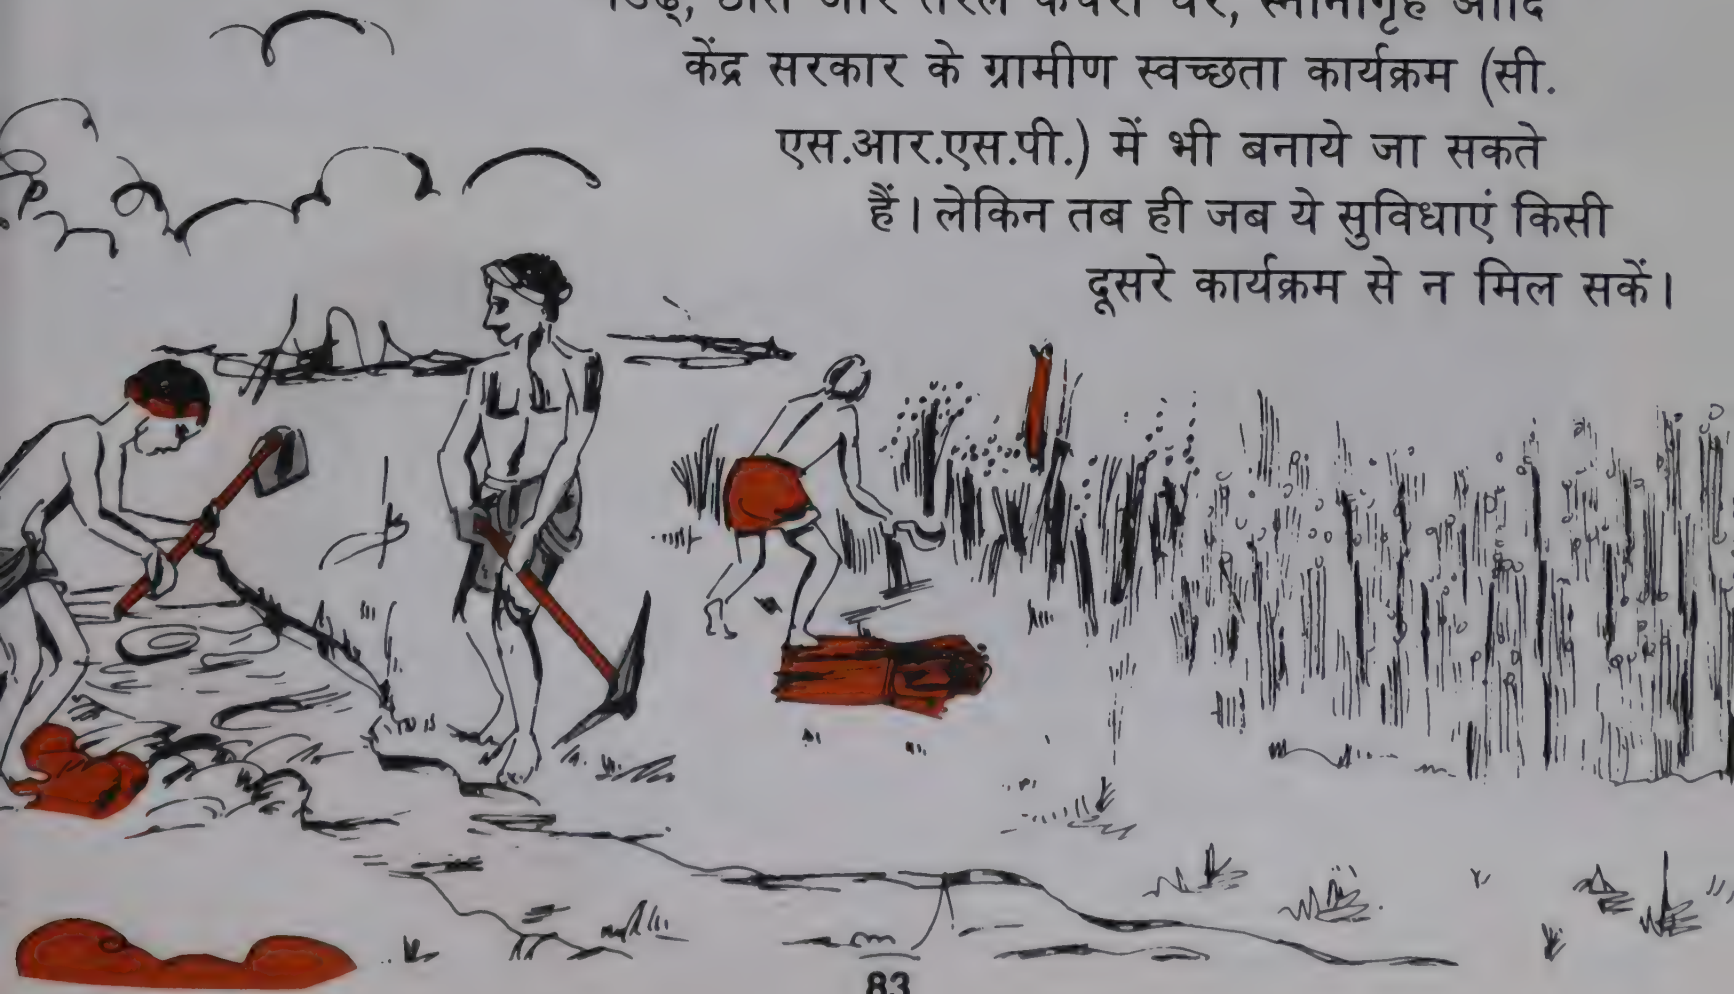 और तरल कचरा घर, स्नानागृह आदि
केंद्र सरकार के ग्रामीण स्वच्छता कार्यक्रम (सी.
एस.आर.एस.पी.) में भी बनाये जा सकते
हैं। लेकिन तब ही जब ये सुविधाएं किसी
दूसरे कार्यक्रम से न मिल सकें।
83